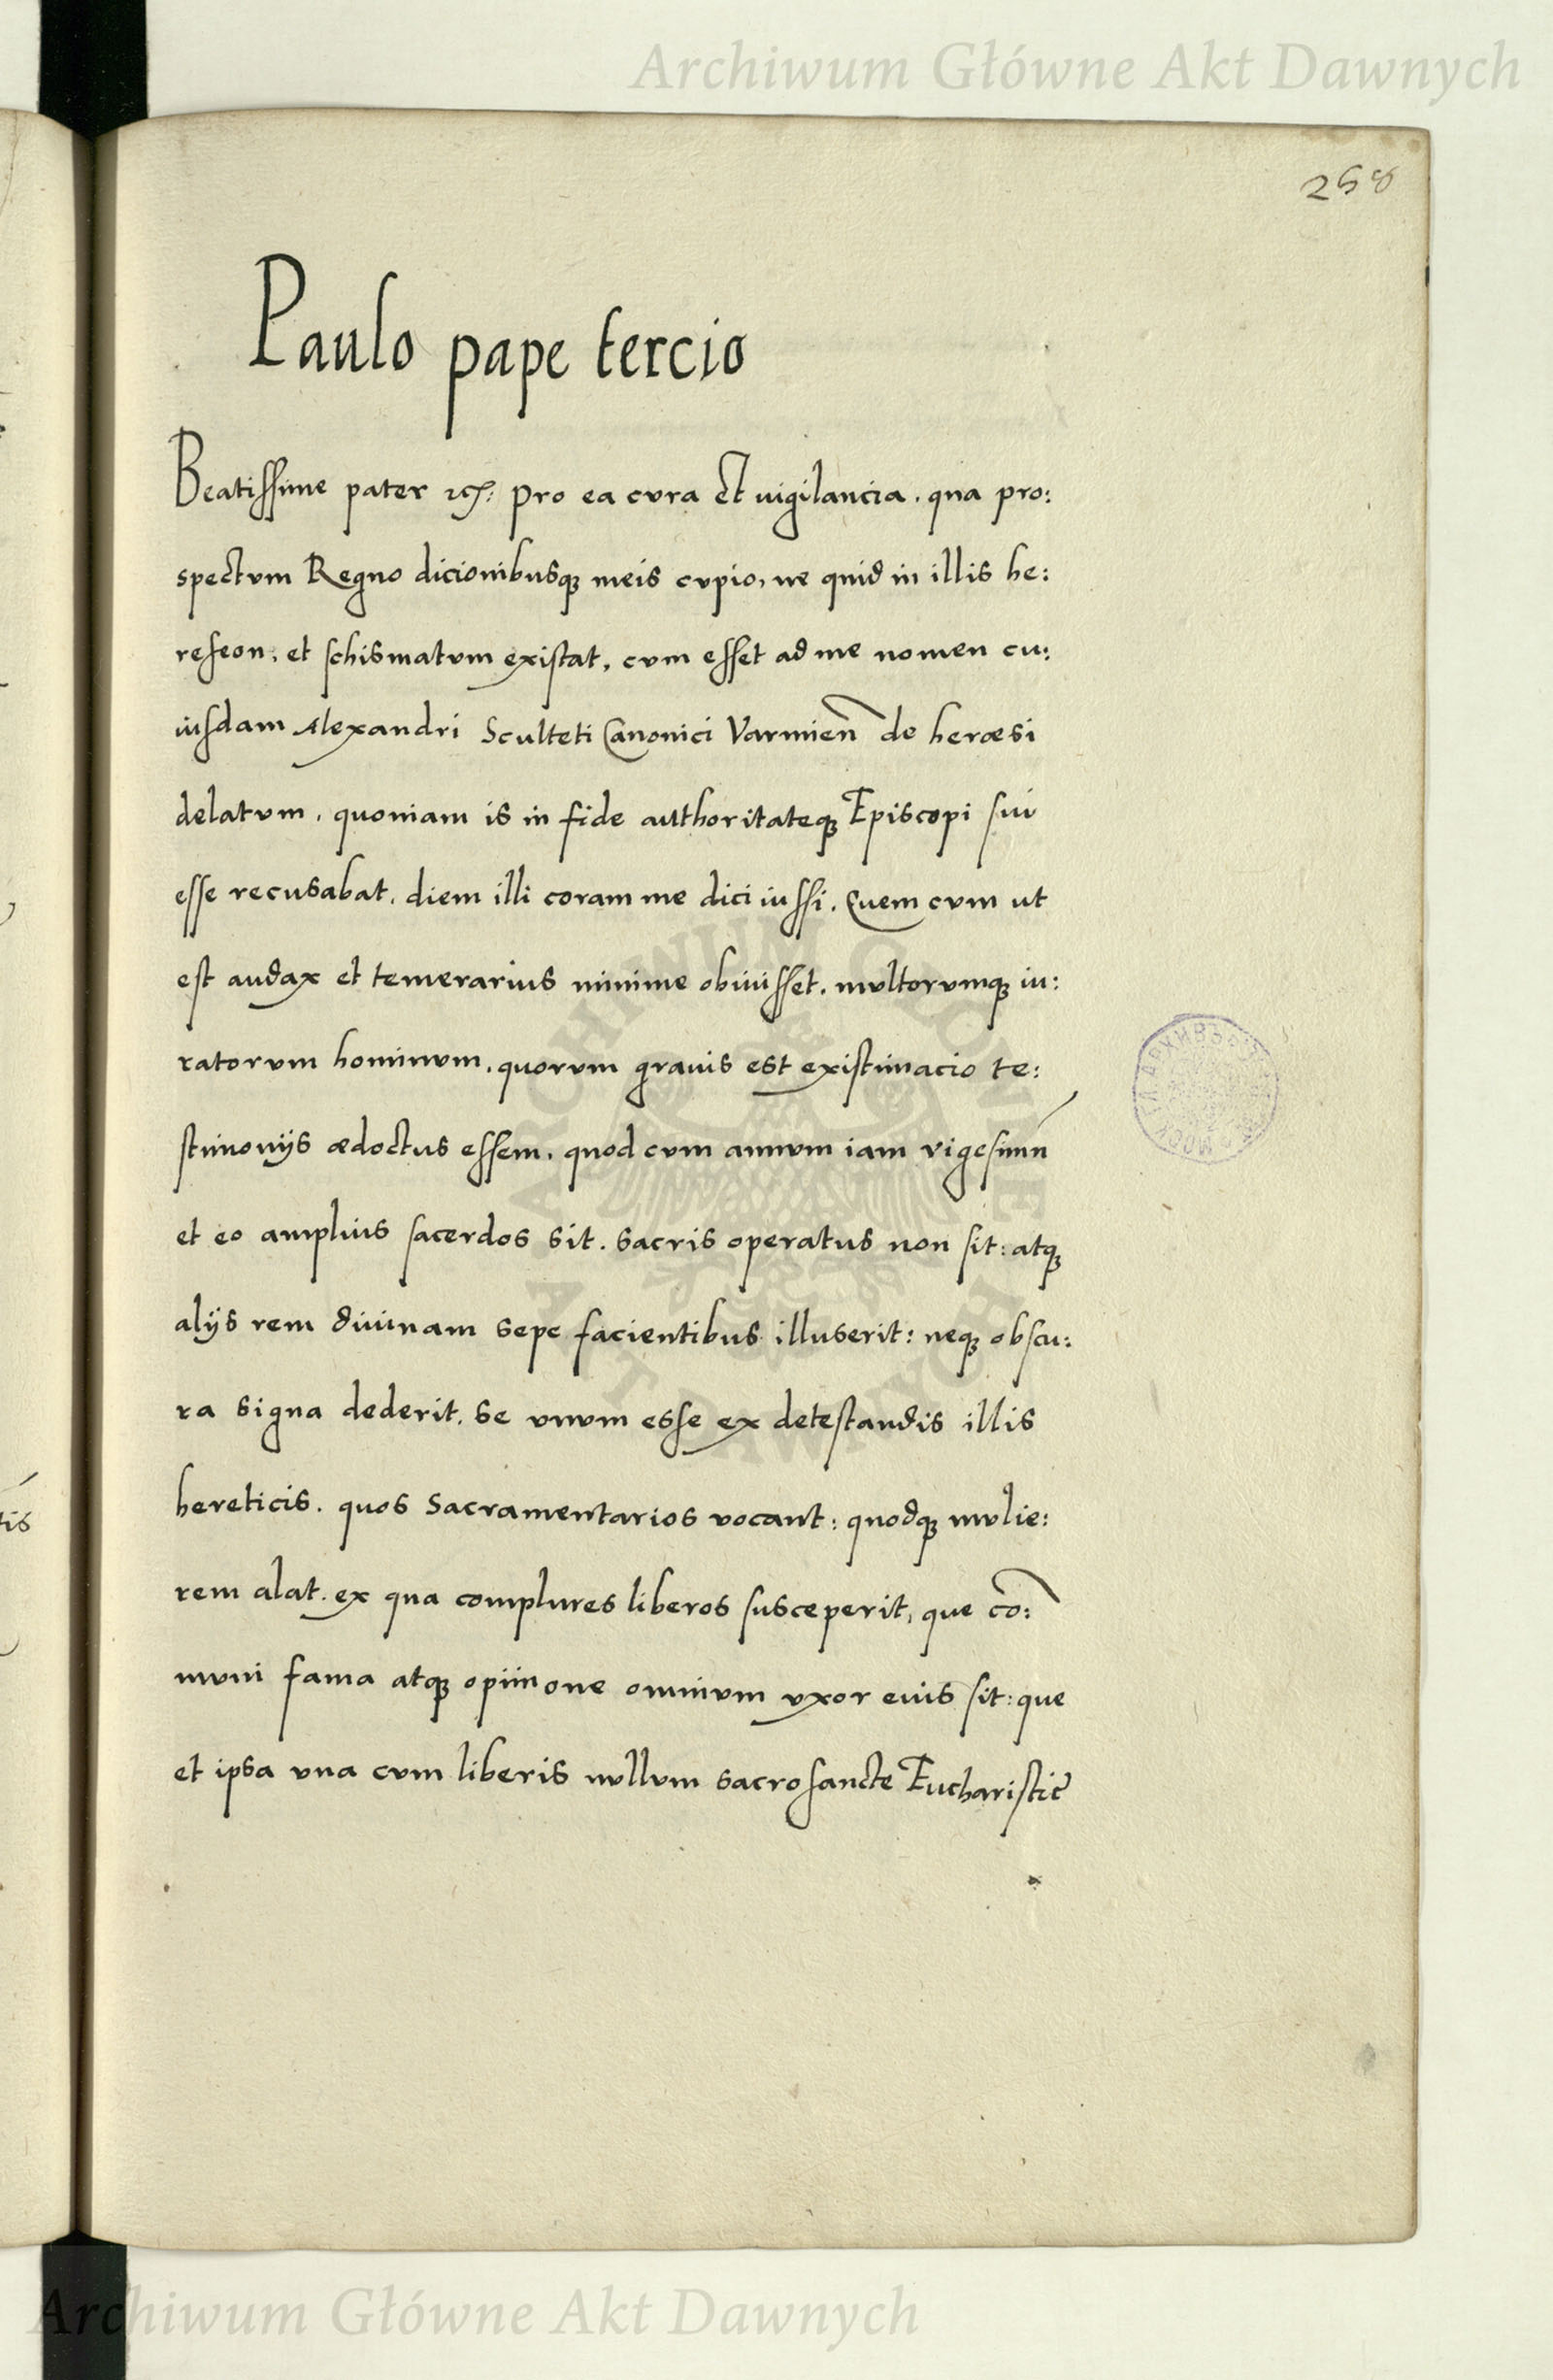 Archiwum Główne Akt Dawnych
258
Paulo pape tercio
Beatissime pater etc: Pro ea cura et vigilancia. qua pro:
spectum Regno dicionibusq meis cupio, ne quid in illis he:
reseon, et schismatum existat, cum esset ad me nomen cu:
iusdam Alexandri Sculteti Canonici Varmien̄ de heræsi
delatum, quoniam is in fide authoritateq Episcopi sui
esse recusabat, diem illi coram me dici iussi. Quem cum ut
est audax et temerarius minime obiuisset, multorumq iu:
ratorum hominum, quorum grauis est existimacio te:
stimonijs ædoctus essem, quod cum annum iam vigesimū
et eo amplius sacerdos sit. sacris operatus non sit: atq
alijs rem diuinam sepe facientibus illuserit: neq obscu:
ra signa dederit, se unum esse ex detestandis illis
hereticis. quos Sacramentarios vocant: quodq mulie:
rem alat. ex qua complures liberos susceperit, que cō:
muni fama atq opinione omnium uxor euis sit: que
et ipsa una cum liberis nullum sacrosancte Eucharistię
tis
ARCHIWUM GŁÓWNE
AKT DAWNYCH
Archiwum Główne Akt Dawnych